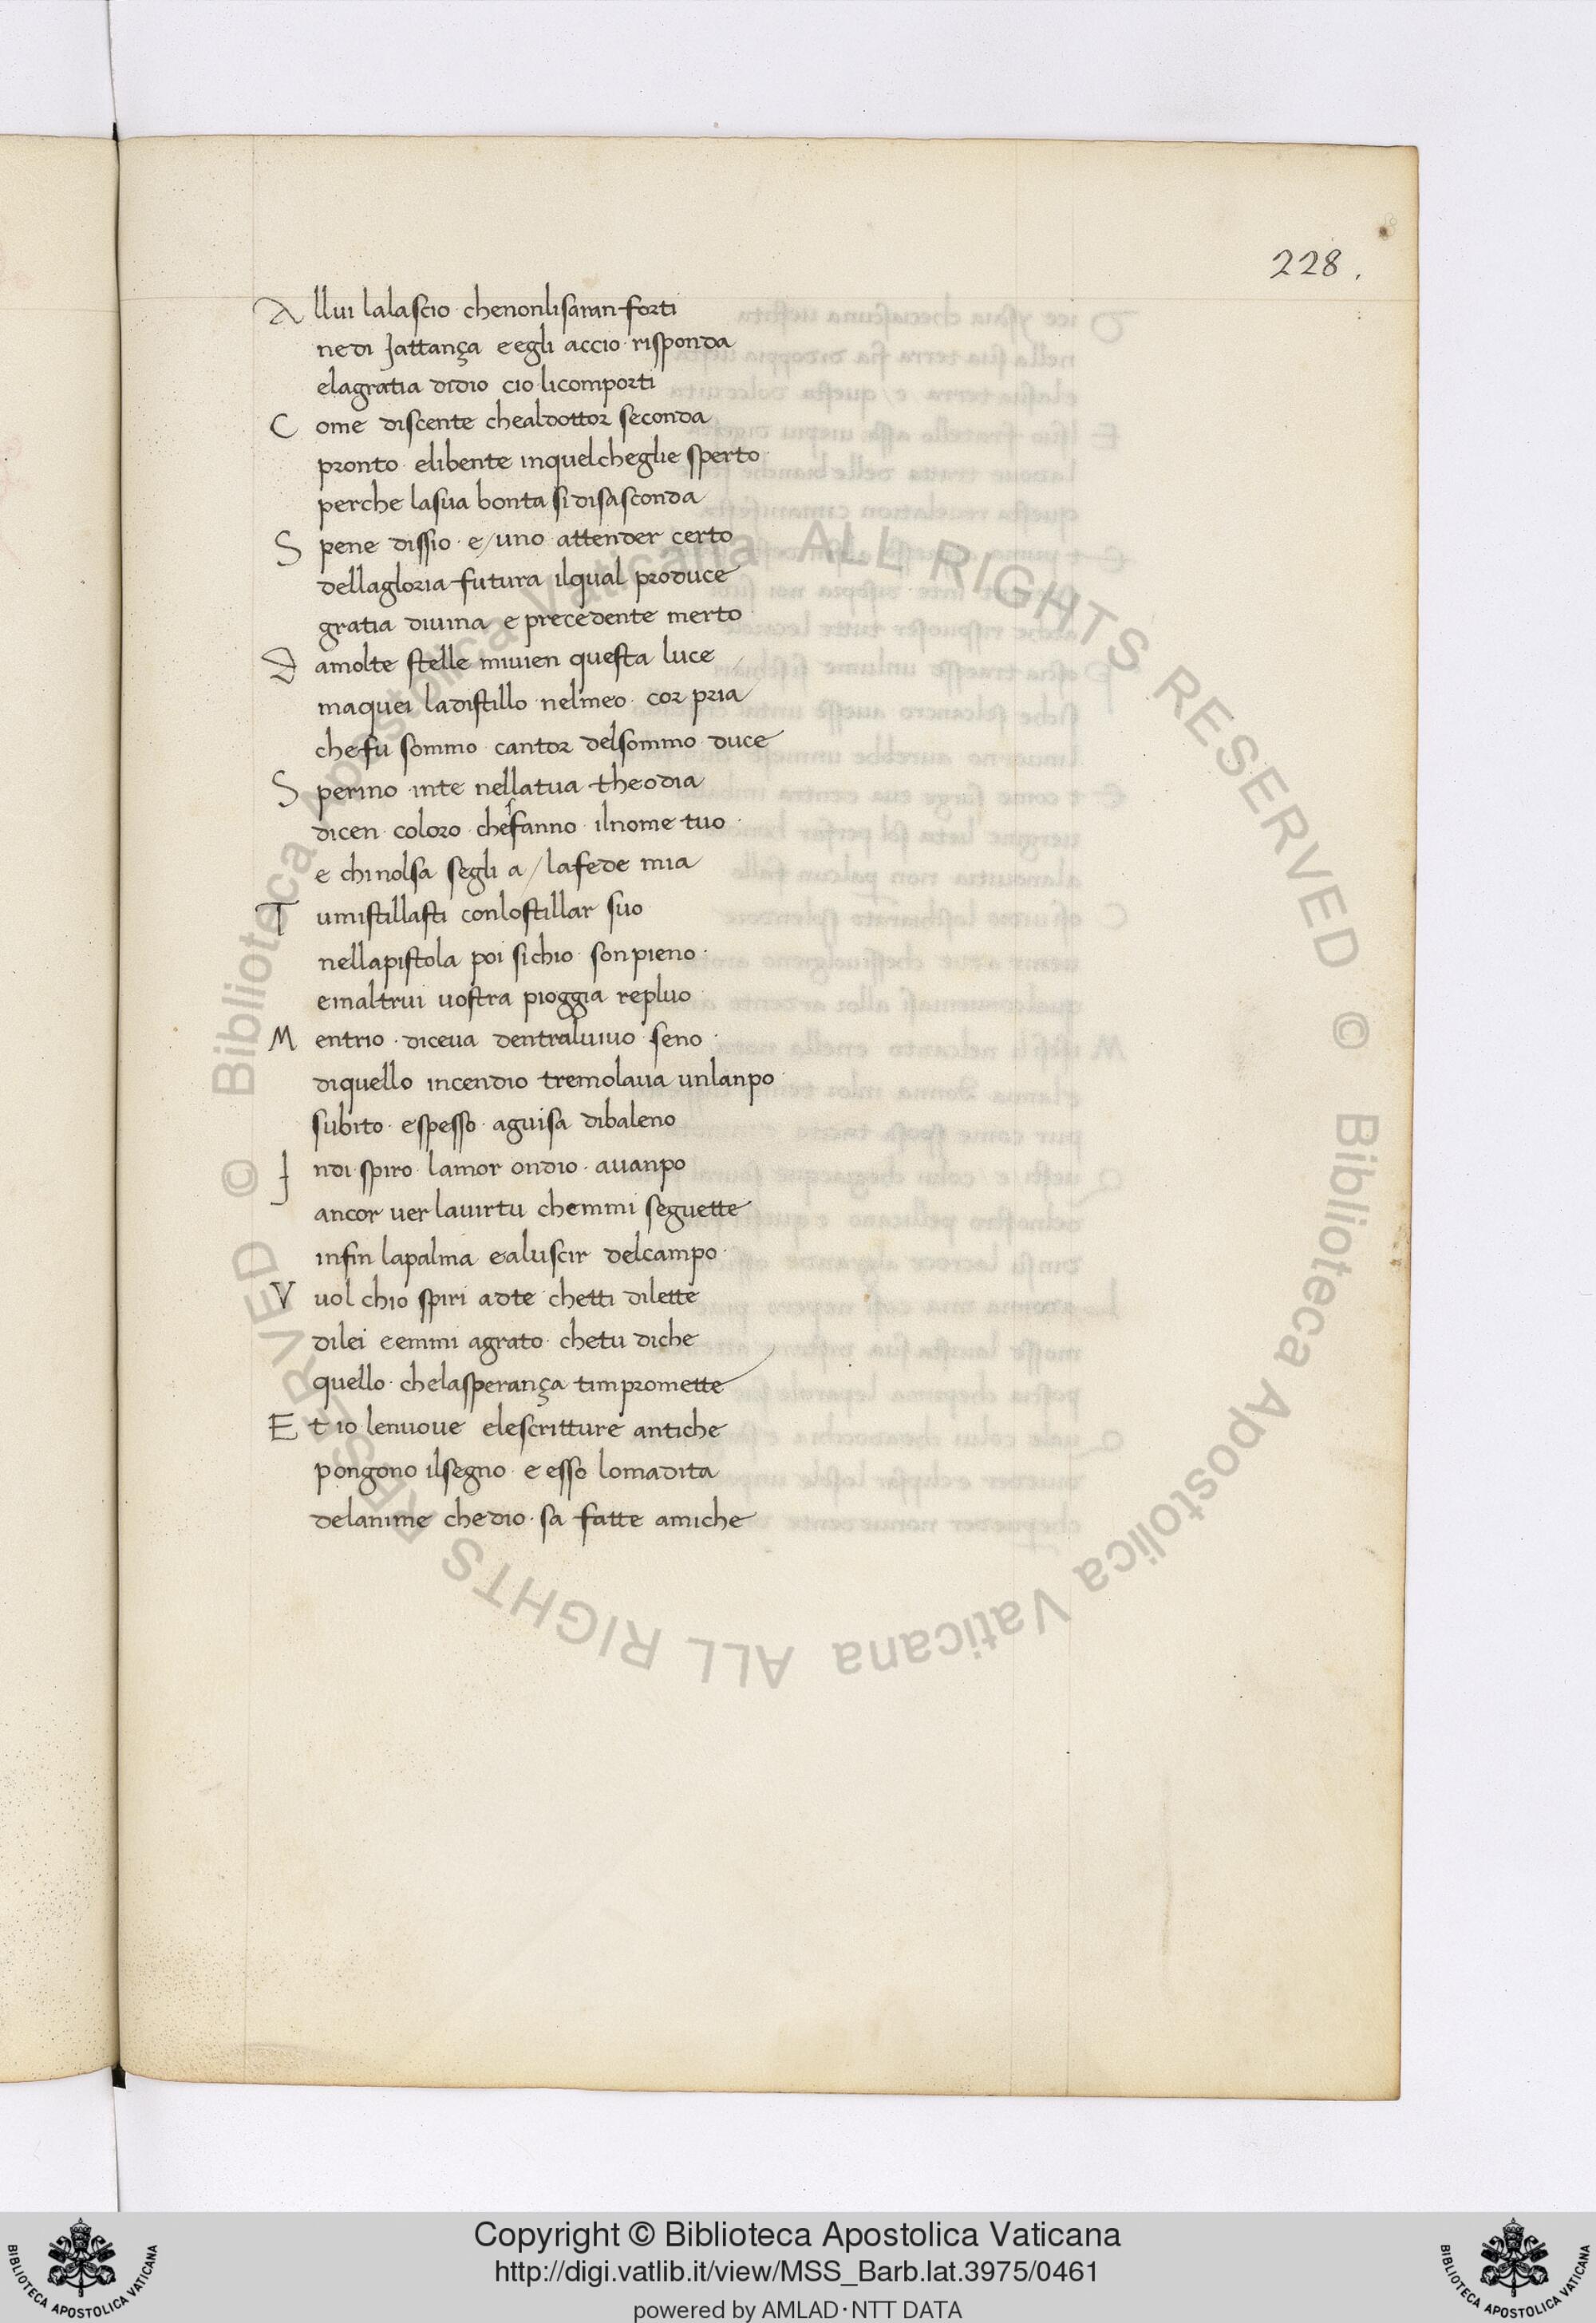 228.
A llui lalascio · chenonlisaran forti
nedi Jattança eegli accio · risponda
elagratia didio cio · licomporti
C ome discente chealdottor seconda
pronto · elibente inquelcheglie sperto ·
perche lasua bonta sidisasconda
S pene dissio · e/uno attender certo
dellagloria futura ilqual produce
gratia diuina e precedente merto
D amolte stelle miuien questa luce
maquei ladistillo · nelmeo · cor pria
chefu sommo · cantor delsommo · duce
S perino · inte nellatua theodia
dicen · coloro · chesfanno · ilnome tuo ·
e chi nolsa segli a / lafede mia
T umistillasti conlostillar suo
nellapistola poi sichio · sonpieno ·
emaltrui uostra pioggia repluo
M entrio · diceua dentraluiuo · seno ·
diquello incendio tremolaua unlanpo ·
subito · espesso · aguisa dibaleno
J ndi spiro · lamor ondio · auanpo
ancor uer lauirtu chemmi seguette
infin lapalma ealuscir delcampo ·
V uol chio spiri adte chetti dilette
dilei eemmi agrato · chetu diche
quello · chelasperança timpromette
E t io lenuoue elescritture antiche
pongono ilsegno · e esso lomadita
delanime chedio · sa fatte amiche
© Biblioteca Apostolica Vaticana ALL RIGHTS RESERVED © Biblioteca Apostolica Vaticana ALL RIGHTS RESERVED
Copyright © Biblioteca Apostolica Vaticana
http://digi.vatlib.it/view/MSS_Barb.lat.3975/0461
powered by AMLAD·NTT DATA
BIBLIOTECA APOSTOLICA VATICANA
BIBLIOTECA APOSTOLICA VATICANA